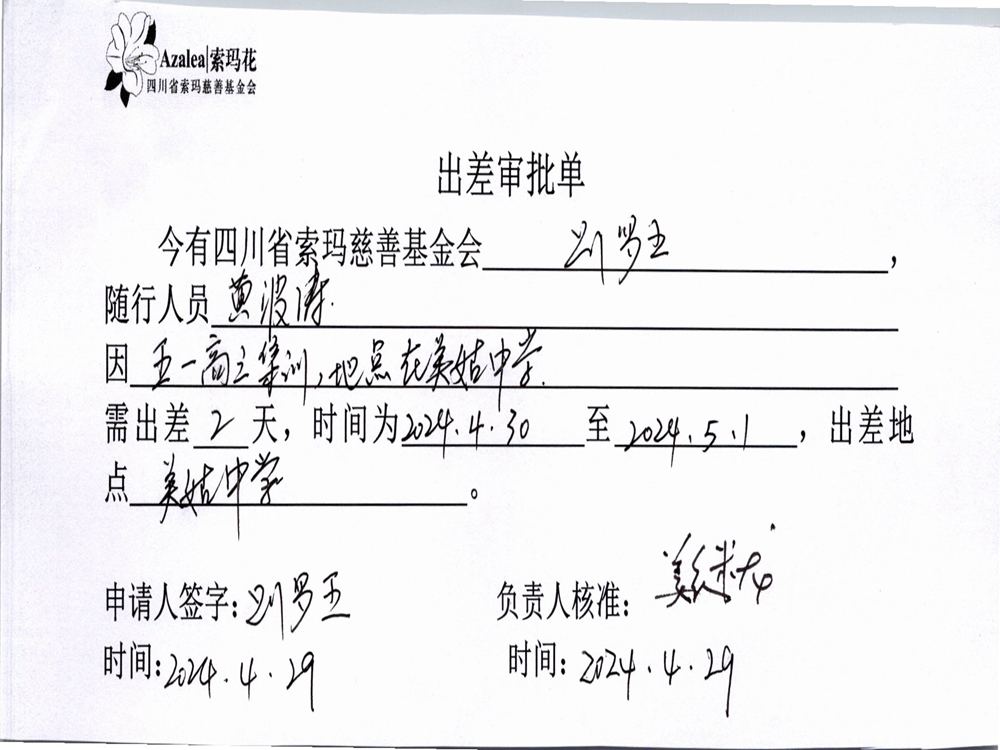 Azalea|索玛花
四川省索玛慈善基金会
出差审批单
今有四川省索玛慈善基金会 刘罗王,
随行人员 黄波涛.
因 五一高三集训,地点在美姑中学.
需出差 2 天,时间为2024.4.30 至 2024.5.1,出差地
点 美姑中学。
申请人签字:刘罗王
负责人核准:
时间:2024.4.29
时间:2024.4.29